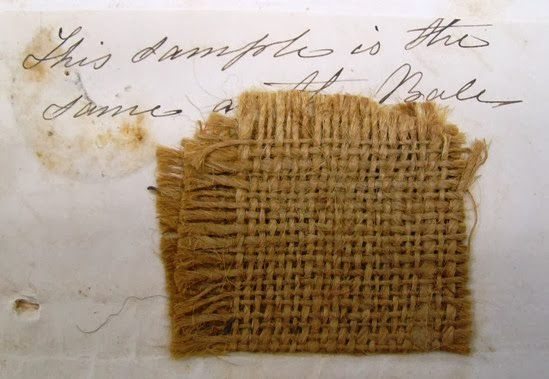 This sample is the
same as the Bale